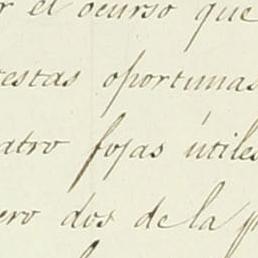 r el ocurso que
testas oportunas
atro fojas útiles
ero dos de la p